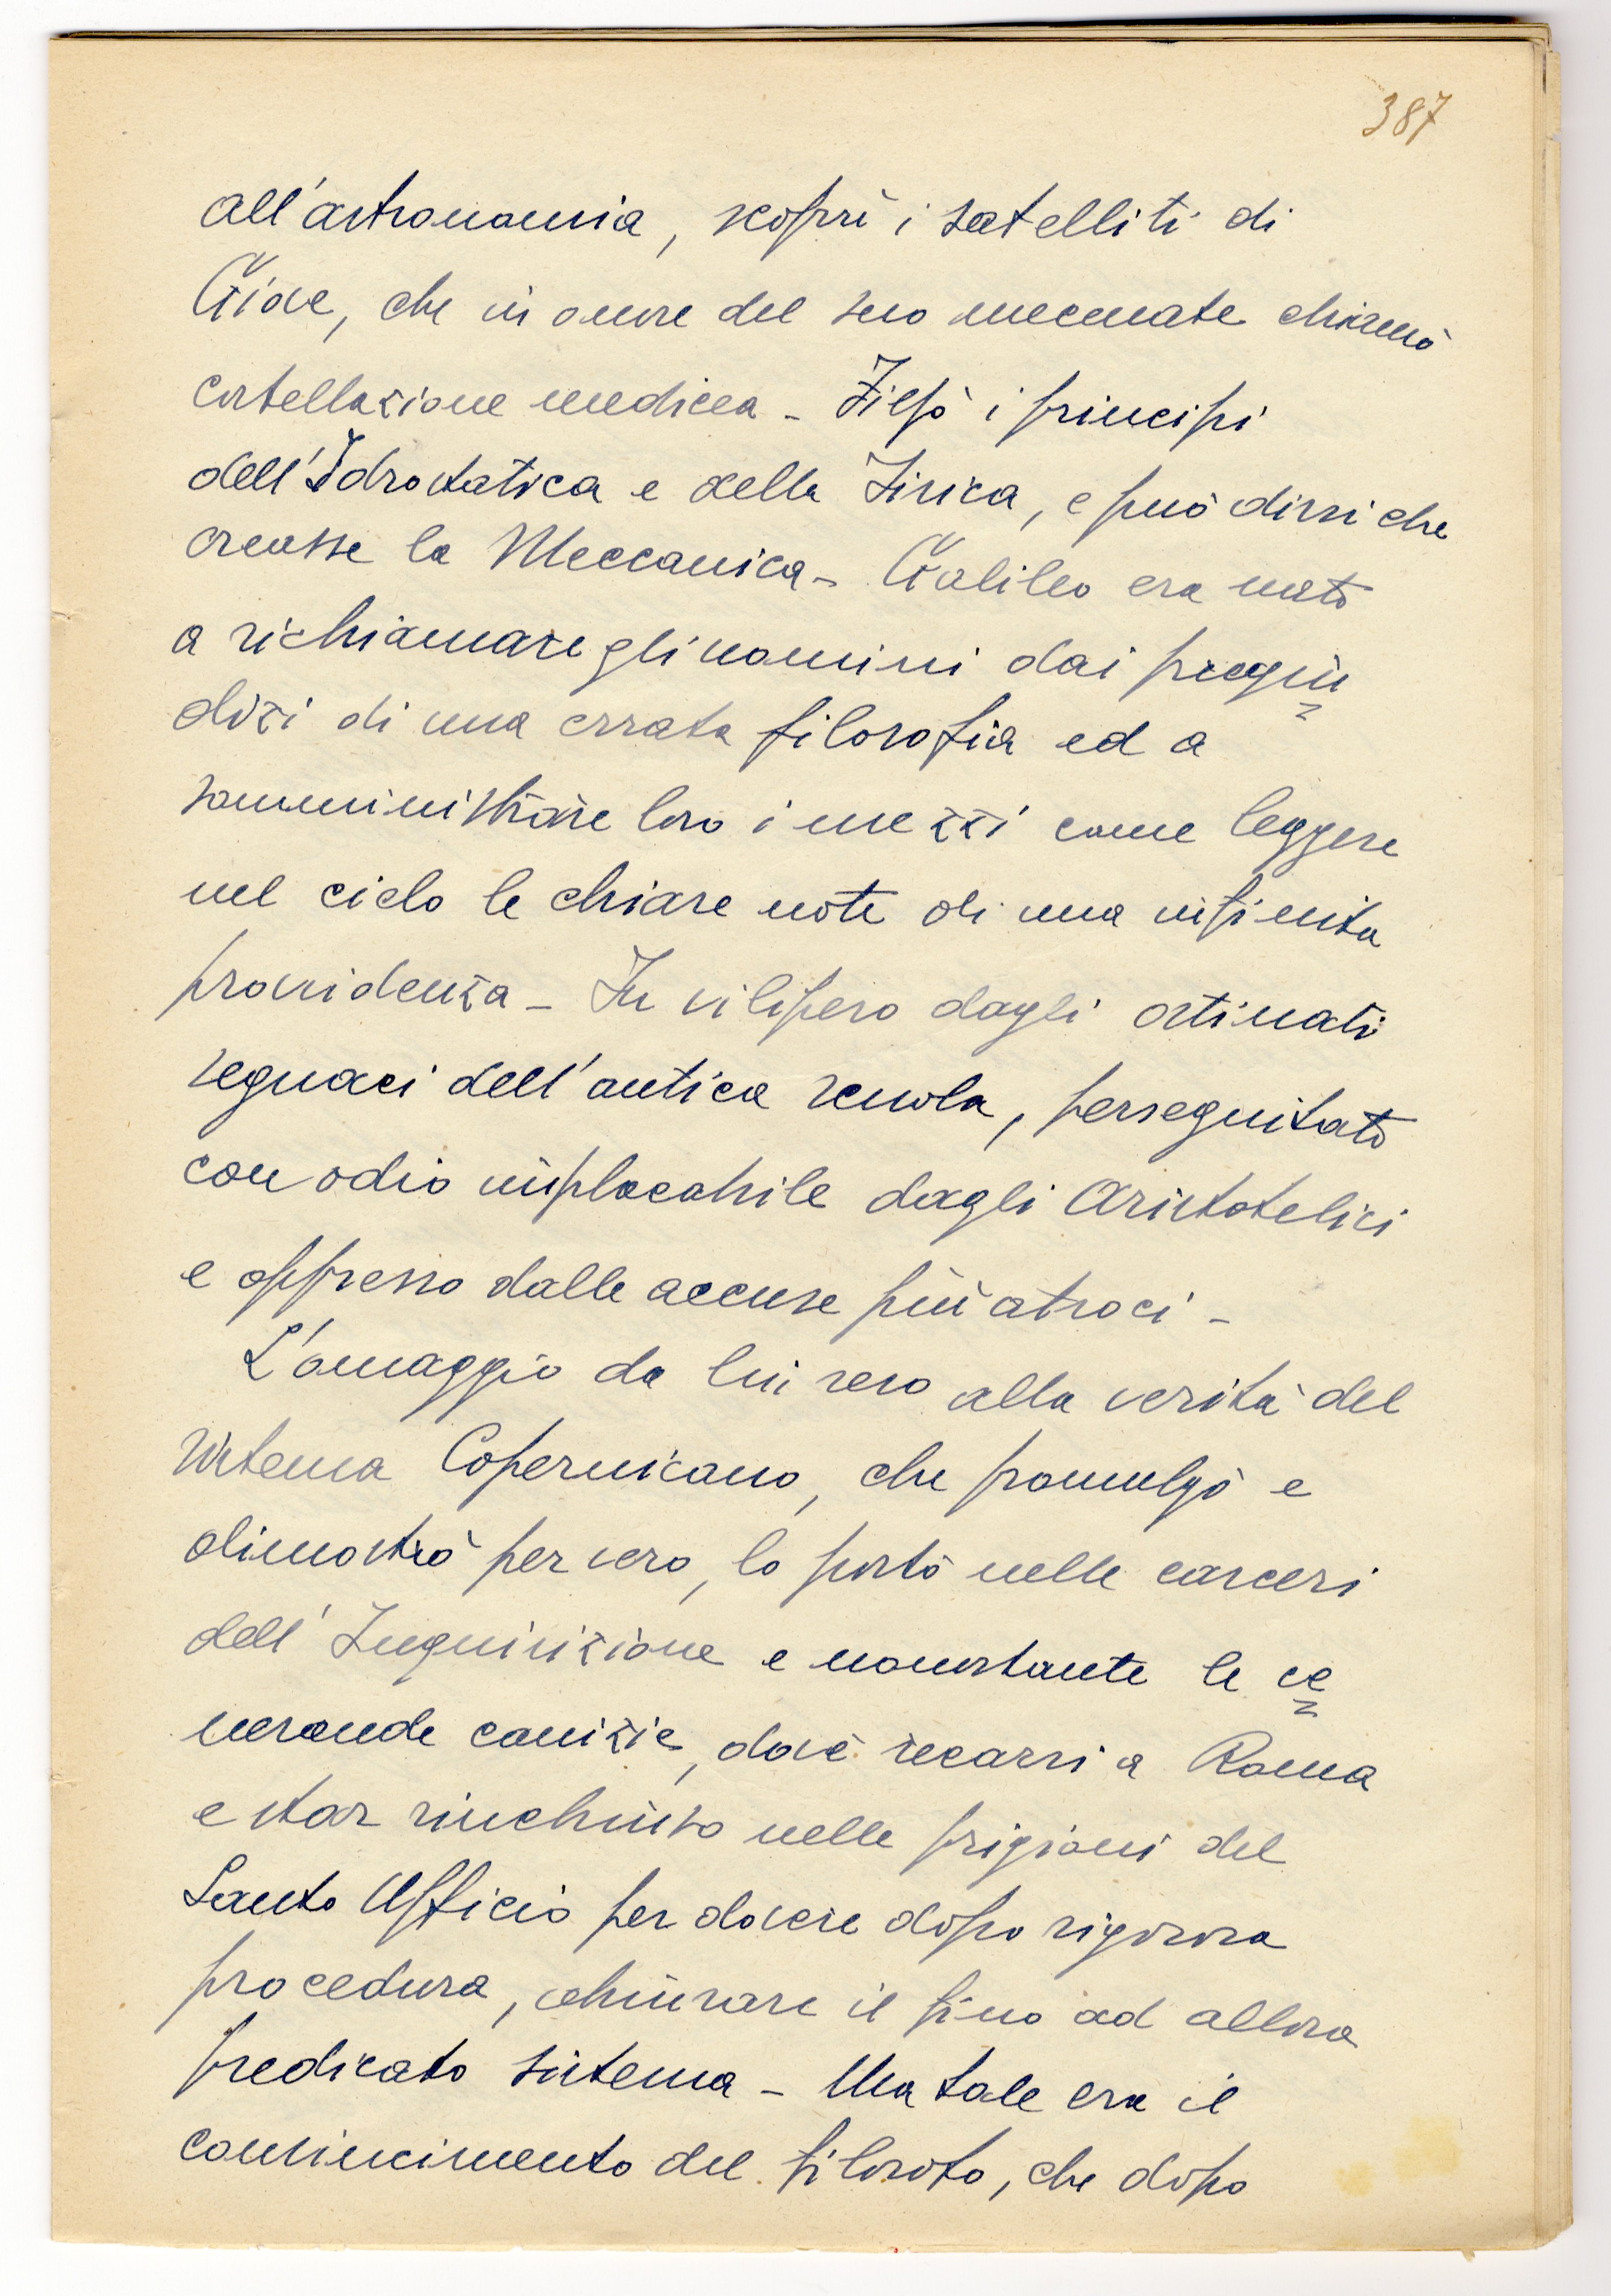 387
all'astronomia, scoprì i satelliti di
Giove, che in onore del suo mecenate chiamò
costellazione medicea - Fissò i principi
dell'Idrostatica e della Fisica, e può dirsi che
creasse la Meccanica - Galileo era nato
a richiamare gli uomini dai pregiu
dizi di una errata filosofia ed a
somministrare loro i mezzi come leggere
nel cielo le chiare note di una infinita
provvidenza - Fu vilipeso dagli ostinati
seguaci dell'antica scuola, perseguitato
con odio implacabile dagli Aristotelici
e oppresso dalle accuse più atroci -
L'omaggio da lui reso alla verità del
sistema Copernicano, che promulgò e
dimostrò per vero, lo portò nelle carceri
dell'Inquisizione e nonostante le ve
nerande canizie, dové recarsi a Roma
e star rinchiuso nelle prigioni del
Santo Ufficio per dovere dopo rigorosa
procedura, abiurare il fino ad allora
predicato sistema - Ma tale era il
convincimento del filosofo, che dopo